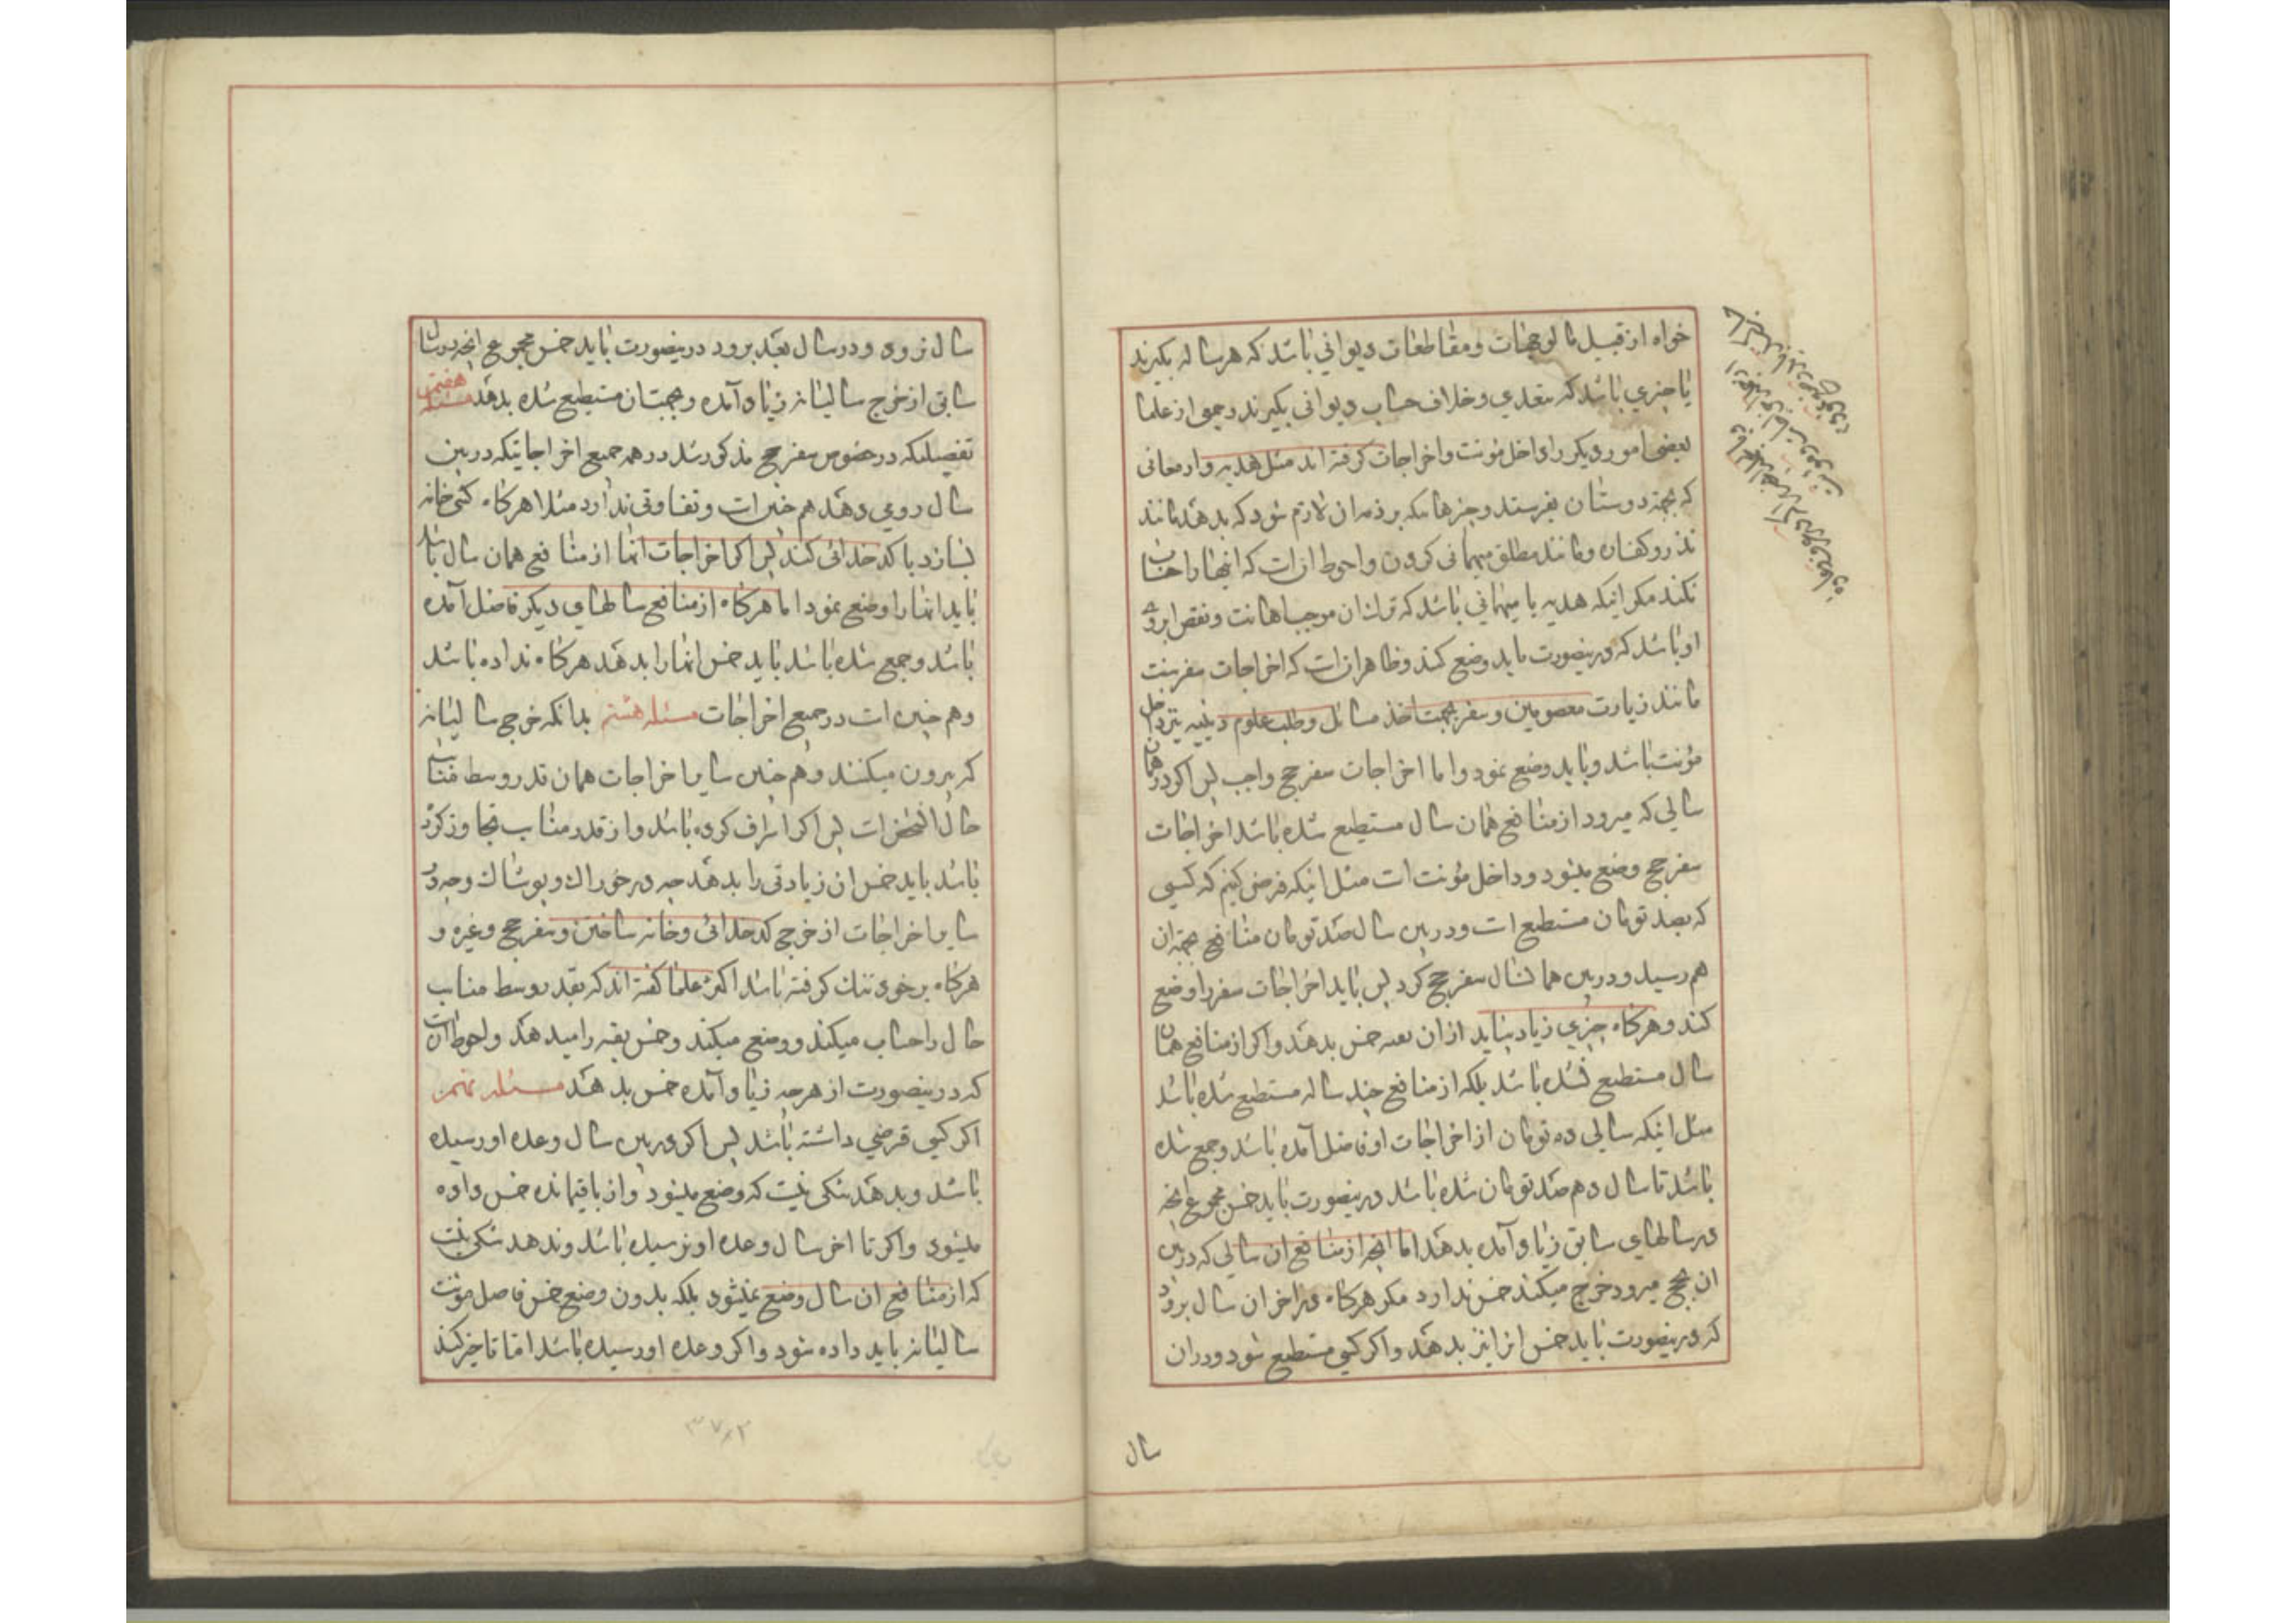 خواه از قبیل مالوجهات و مقاطعات دیوانی باشد که هر ساله بکیرند
یا چیزی باشد که بتعدی و خلاف حساب دیوانی بکیرند و جمعی از علما
بعضی امور دیکر را داخل مؤنت و اخراجات کرفته اند مثل هدیه و ارمغانی
که بجهة دوستان بفرستد و چیزهائیکه بر ذمه ان لازم شود که بدهد مانند
نذر و کفاره و مانند مطلق میهمانی کردن و احوط انست که اینها را حساب
نکند مکر اینکه هدیه یا میهمانی باشد که ترک ان موجب اهانت و نقص ابروی
او باشد که درینصورت باید وضع کند و ظاهر انست که اخراجات سفر سنت
مانند زیارت معصومین و سفر بجهت اخذ مسائل و طلب علوم دینیه نیز داخل
مؤنت باشد و باید وضع نمود و اما اخراجات سفر حج واجب پس اکر در همان
سالی که میرود از منافع همان سال مستطیع شده باشد اخراجات
سفر حج وضع میشود و داخل مؤنت است مثل اینکه فرض کنیم که کسی
که بصد تومان مستطیع است و در بین سال صد تومان منافع بجهة ان
هم رسید و در بین همانسال سفر حج کرد پس باید اخراجات سفر را وضع
کند و هرکاه چیزی زیاد بیاید از ان بقیه خمس بدهد و اکر از منافع همان
سال مستطیع نشده باشد بلکه از منافع چند ساله مستطیع شده باشد
مثل اینکه سالی ده تومان از اخراجات او فاضل آمده باشد و جمع شده
باشد تا سال دهم صد تومان شده باشد درینصورت باید خمس مجموع انچه
در سالهای سابق زیاد آمده بدهد اما انچه از منافع ان سالی که در بین
ان بحج میرود خرج میکند خمس ندارد مکر هرکاه در اخر ان سال برود
که درینصورت باید خمس انرا نیز بدهد و اکر کسی مستطیع شود و در ان
سال
سال نرود و در سال بعد برود درینصورت باید خمس مجموع انچه در سال
سابق از خرج سالیانه زیاد آمده و بجهت ان مستطیع شده بدهد مسئله هفتم
تفصیلیکه در خصوص سفر حج مذکور شد در همه جمیع اخراجاتیکه در بین
سال روی دهد هم چنین است و تفاوتی ندارد مثلا هرکاه کسی خانه
بسازد یا کدخدائی کند پس اکر اخراجات انها از منافع همان سال باشد
باید انها را وضع نمود اما هرکاه از منافع سالهای دیکر فاضل آمده
باشد و جمع شده باشد باید خمس انها را بدهد هرکاه نداده باشد
و هم چنین است در جمیع اخراجات مسئله هشتم بدانکه خرج سالیانه
که بیرون میکنند و هم چنین سایر اخراجات همان قدر وسط مناسب
حال انشخص است پس اکر اسراف کرده باشد و از قدر مناسب تجاوز کرده
باشد باید خمس ان زیادتی را بدهد چه در خوراک و پوشاک و چه در
سایر اخراجات از خرج کدخدائی و خانه ساختن و سفر حج و غیره و
هرکاه بر خود تنک کرفته باشد اکثر علما کفته اند که بقدر وسط مناسب
حال را حساب میکند و وضع میکند و خمس بقیه را میدهد و احوط انست
که درینصورت از هرچه زیاد آمده خمس بدهد مسئله نهم
اکر کسی قرضی داشته باشد پس اکر در بین سال وعده او رسیده
باشد و بدهد شکی نیست که وضع میشود و از باقیمانده خمس داده
میشود و اکر تا اخر سال وعده او نرسیده باشد و ندهد شکی نیست
که از منافع ان سال وضع نمیشود بلکه بدون وضع خمس فاضل مؤنت
سالیانه باید داده شود و اکر وعده او رسیده باشد اما تاخیر کند